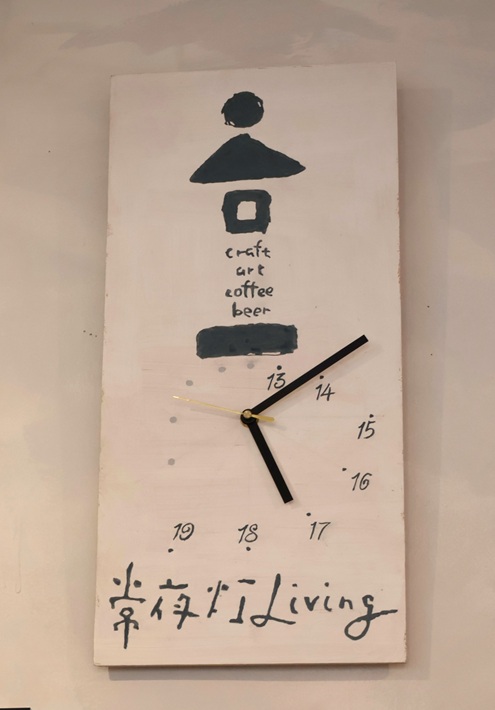 craft
art
coffee
beer
13
14
15
16
17
18
19
常夜灯Living